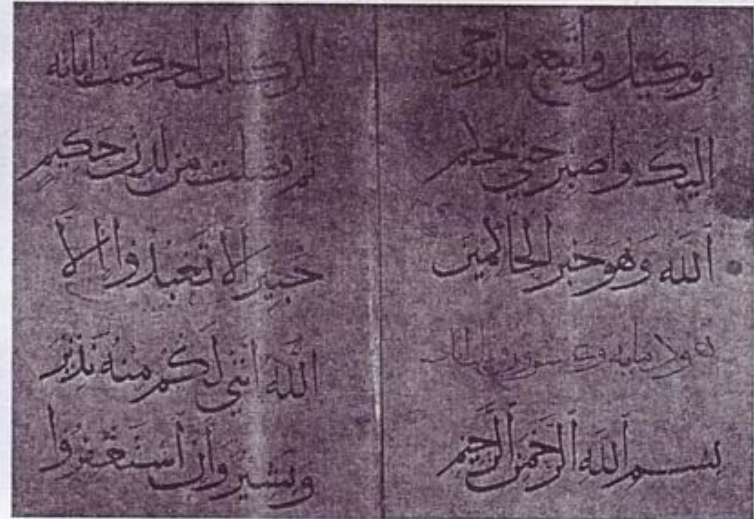 بوكيل واتبع ما يوحى
اليك واصبر حتى يحكم
الله وهو خير الحاكمين
هود مايه وعشرون
بسم الله الرحمن الرحيم
الر كتاب احكمت اياته
ثم فصلت من لدن حكيم
خبير الا تعبدوا الا
الله انني لكم منه نذير
وبشير وان استغفروا